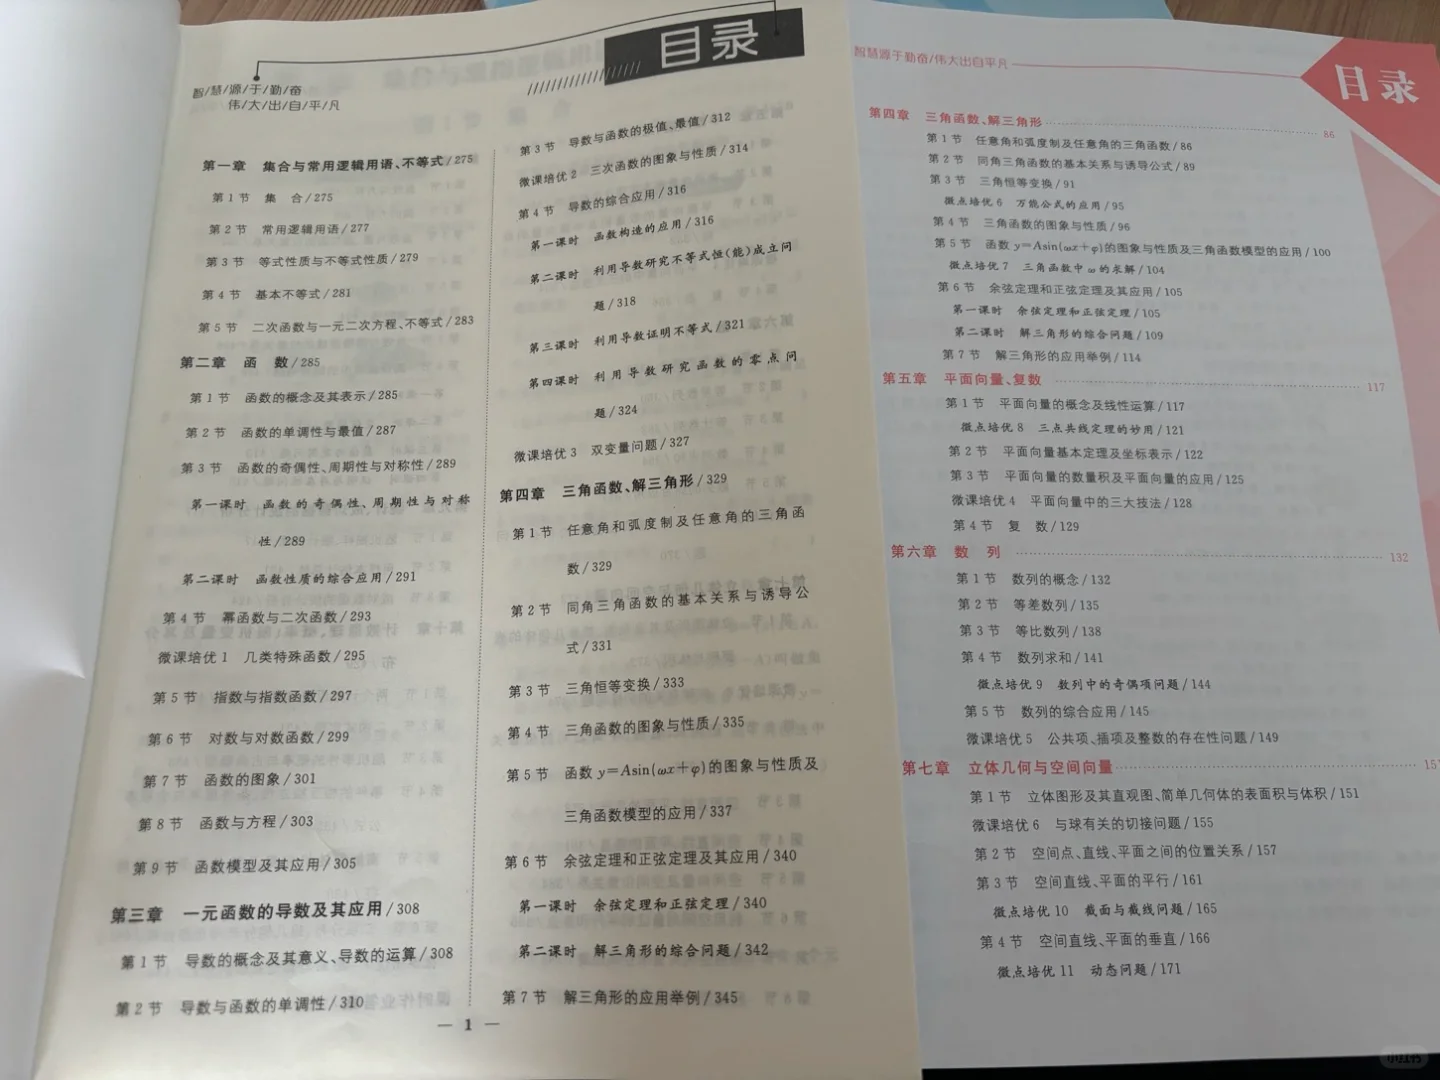 智/慧/源/于/勤/奋
伟/大/出/自/平/凡
目录
第一章 集合与常用逻辑用语、不等式/275
第1节 集 合/275
第2节 常用逻辑用语/277
第3节 等式性质与不等式性质/279
第4节 基本不等式/281
第5节 二次函数与一元二次方程、不等式/283
第二章 函 数/285
第1节 函数的概念及其表示/285
第2节 函数的单调性与最值/287
第3节 函数的奇偶性、周期性与对称性/289
第一课时 函数的奇偶性、周期性与对称
性/289
第二课时 函数性质的综合应用/291
第4节 幂函数与二次函数/293
微课培优1 几类特殊函数/295
第5节 指数与指数函数/297
第6节 对数与对数函数/299
第7节 函数的图象/301
第8节 函数与方程/303
第9节 函数模型及其应用/305
第三章 一元函数的导数及其应用/308
第1节 导数的概念及其意义、导数的运算/308
第2节 导数与函数的单调性/310
第3节 导数与函数的极值、最值/312
微课培优2 三次函数的图象与性质/314
第4节 导数的综合应用/316
第一课时 函数构造的应用/316
第二课时 利用导数研究不等式恒(能)成立问
题/318
第三课时 利用导数证明不等式/321
第四课时 利用导数研究函数的零点问
题/324
微课培优3 双变量问题/327
第四章 三角函数、解三角形/329
第1节 任意角和弧度制及任意角的三角函
数/329
第2节 同角三角函数的基本关系与诱导公
式/331
第3节 三角恒等变换/333
第4节 三角函数的图象与性质/335
第5节 函数y=Asin(ωx+φ)的图象与性质及
三角函数模型的应用/337
第6节 余弦定理和正弦定理及其应用/340
第一课时 余弦定理和正弦定理/340
第二课时 解三角形的综合问题/342
第7节 解三角形的应用举例/345
— 1 —
智慧源于勤奋/伟大出自平凡
目录
第四章 三角函数、解三角形 86
第1节 任意角和弧度制及任意角的三角函数/86
第2节 同角三角函数的基本关系与诱导公式/89
第3节 三角恒等变换/91
微点培优6 万能公式的应用/95
第4节 三角函数的图象与性质/96
第5节 函数y=Asin(ωx+φ)的图象与性质及三角函数模型的应用/100
微点培优7 三角函数中ω的求解/104
第6节 余弦定理和正弦定理及其应用/105
第一课时 余弦定理和正弦定理/105
第二课时 解三角形的综合问题/109
第7节 解三角形的应用举例/114
第五章 平面向量、复数 117
第1节 平面向量的概念及线性运算/117
微点培优8 三点共线定理的妙用/121
第2节 平面向量基本定理及坐标表示/122
第3节 平面向量的数量积及平面向量的应用/125
微课培优4 平面向量中的三大技法/128
第4节 复 数/129
第六章 数 列 132
第1节 数列的概念/132
第2节 等差数列/135
第3节 等比数列/138
第4节 数列求和/141
微点培优9 数列中的奇偶项问题/144
第5节 数列的综合应用/145
微课培优5 公共项、插项及整数的存在性问题/149
第七章 立体几何与空间向量 151
第1节 立体图形及其直观图、简单几何体的表面积与体积/151
微课培优6 与球有关的切接问题/155
第2节 空间点、直线、平面之间的位置关系/157
第3节 空间直线、平面的平行/161
微点培优10 截面与截线问题/165
第4节 空间直线、平面的垂直/166
微点培优11 动态问题/171
小红书